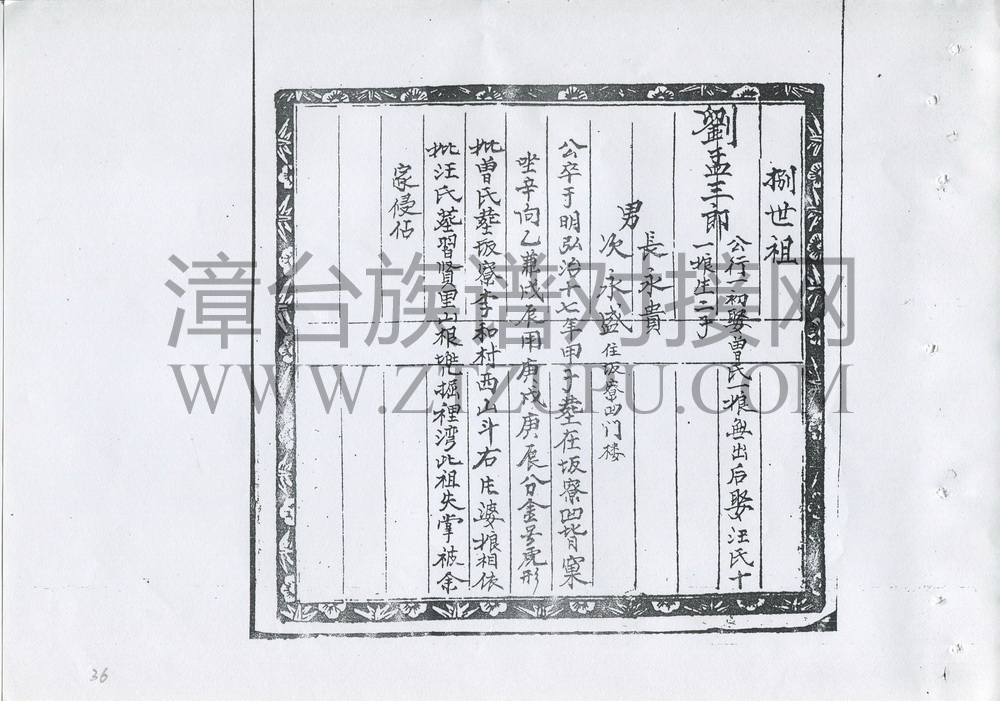 捌世祖
劉孟三郎
公行一初娶曾氏一娘無出后娶汪氏十
一娘生二子
男
長永貴
次永盛
住坂寮凹门楼
公卒于明弘治十七年甲子葬在坂寮凹背窠
坐辛向乙兼戊辰用庚戌庚辰分金号虎形
批曾氏葬坂寮李和村西山斗右片婆娘相依
批汪氏葬習賢里山根墘掘裡湾此祖失掌被余
家侵佔
漳台族谱对接网
WWW.ZTZUPU.COM
36